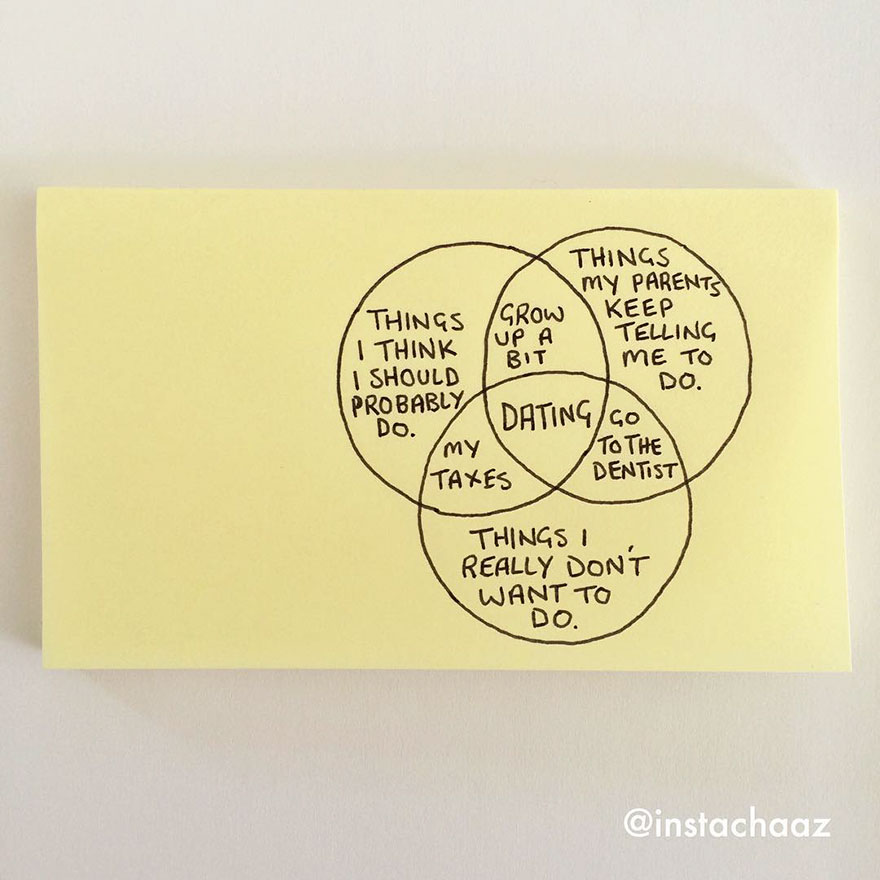 THINGS
I THINK
I SHOULD
PROBABLY
DO.
GROW
UP A
BIT
THINGS
MY PARENTS
KEEP
TELLING
ME TO
DO.
DATING
MY
TAXES
GO
TO THE
DENTIST
THINGS I
REALLY DON'T
WANT TO
DO.
@instachaaz